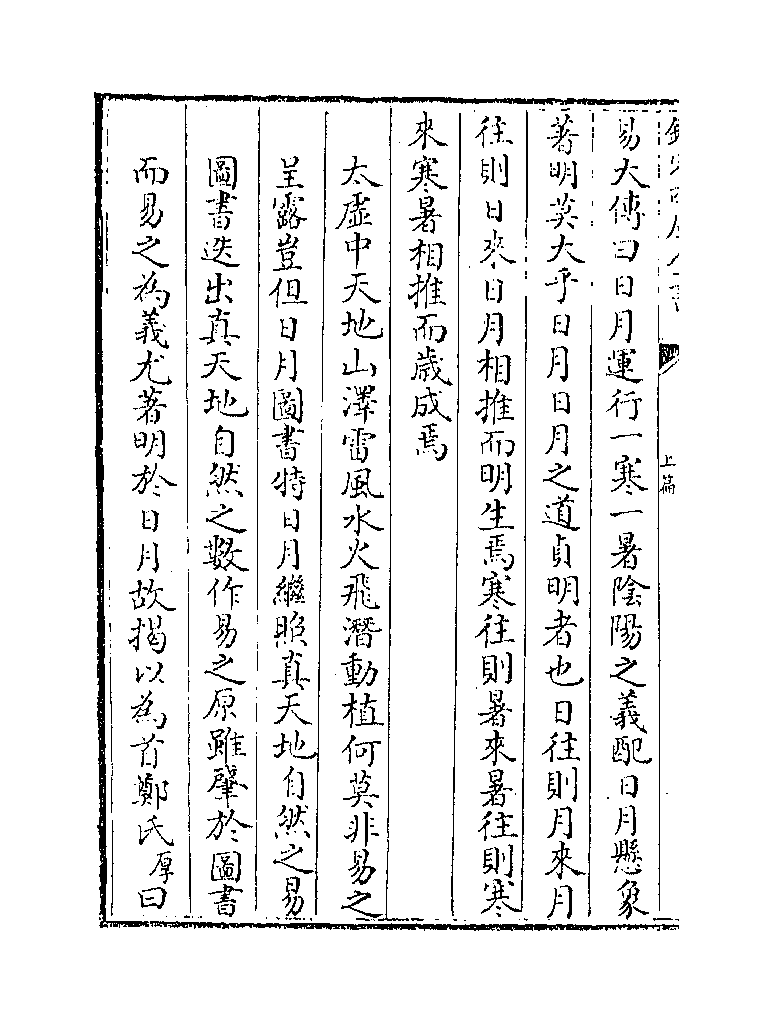 易大傳曰日月運行一寒一暑陰陽之義配日月懸象
著明莫大乎日月日月之道貞明者也日往則月來月
往則日來日月相推而明生焉寒往則暑來暑往則寒
來寒暑相推而歲成焉
太虛中天地山澤雷風水火飛潛動植何莫非易之
呈露豈但日月圖書特日月繼照真天地自然之易
圖書迭出真天地自然之數作易之原雖肇於圖書
而易之為義尤著明於日月故揭以為首鄭氏厚曰
上篇